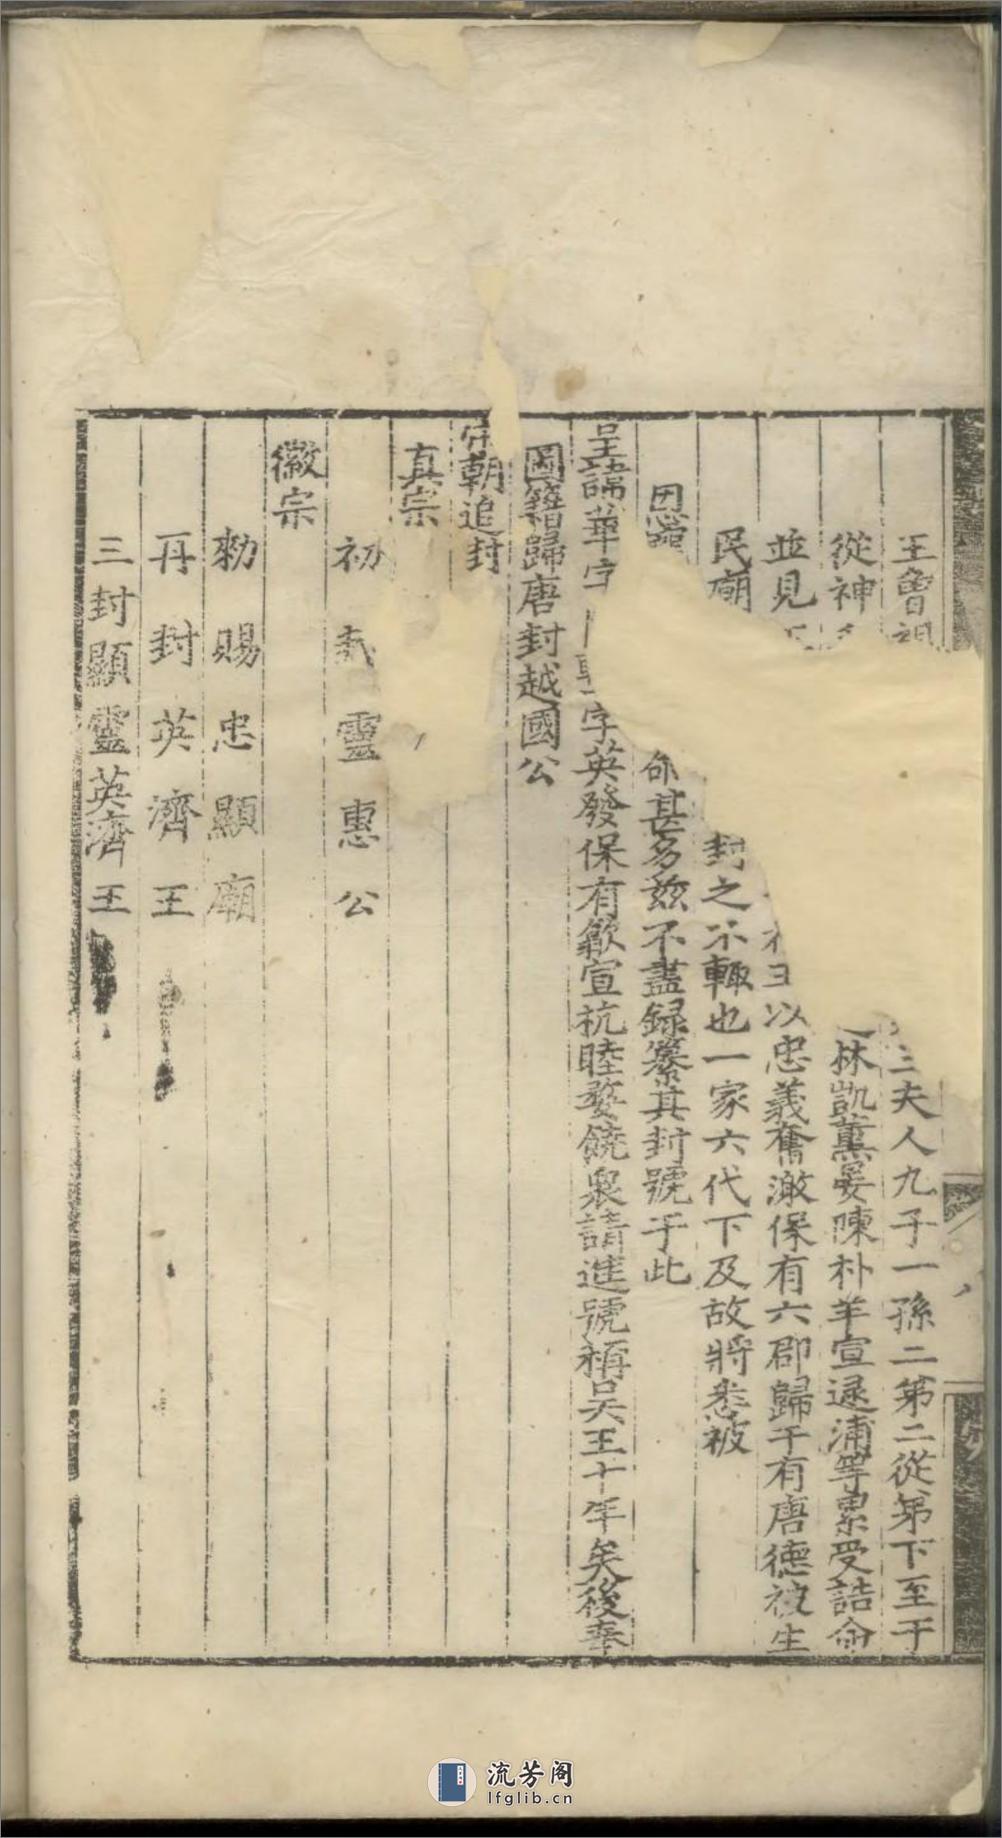 王魯祖三夫人九子一孫二第二從第下至于
從神林凱薫晏陳朴羊宣逯浦等累受誥命
並見以忠義奮激保有六郡歸于有唐德被生
民廟封之不輙也一家六代下及故將悉被
恩命甚多兹不盡録纂其封號于此
諱華字字英發保有歙宣杭睦婺饒衆請進號稱吴王十年矣後奉
圖籍歸唐封越國公
宋朝追封
真宗
初封靈惠公
徽宗
勑賜忠顯廟
再封英濟王
三封顯靈英濟王
流芳阁
lfglib.cn